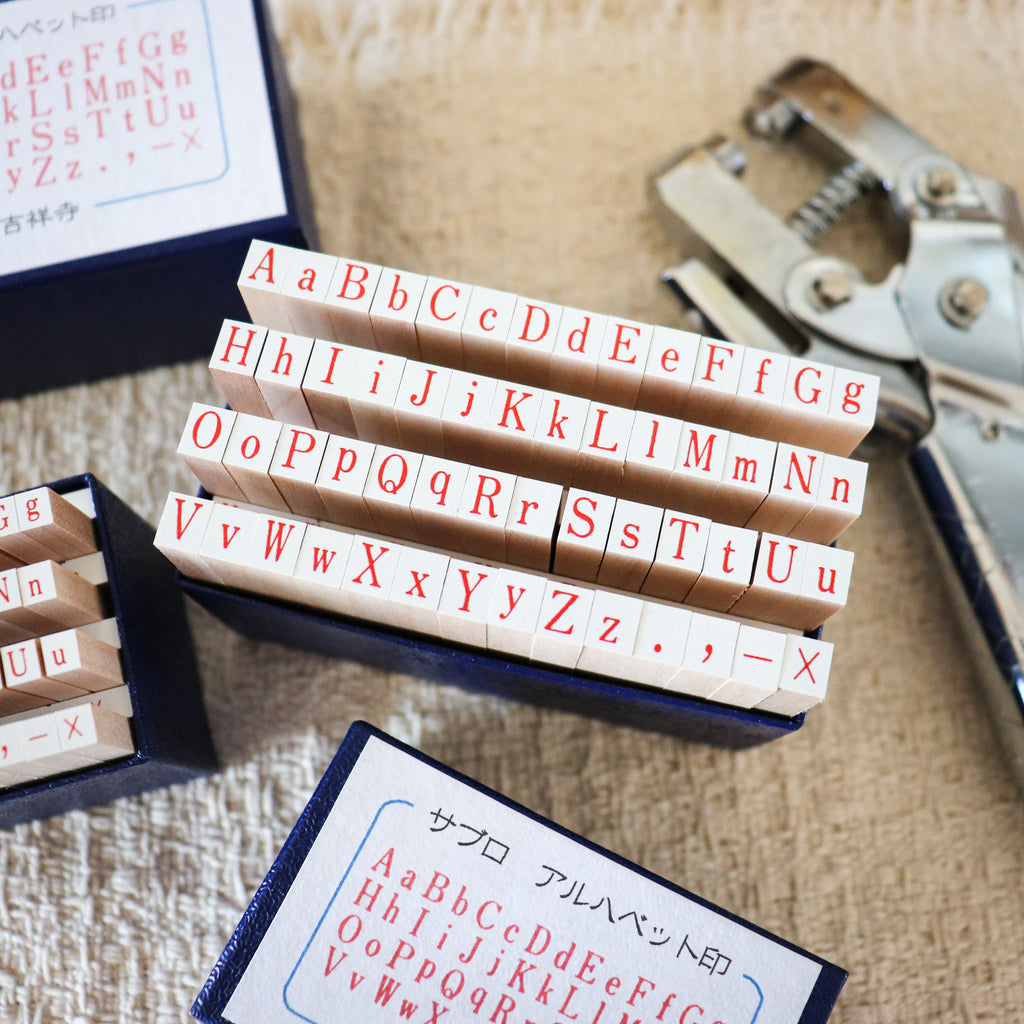 ハベット印
dEeFfGg
kLlMmNn
rSsTtUu
yZz.,−×
吉祥寺
AaBbCcDdEeFfGg
HhIiJjKkLlMmNn
OoPpQqRrSsTtUu
VvWwXxYyZz.,−×
Gg
Nn
Uu
,−×
サブロ アルハベット印
AaBbCcDdEeFfG
HhIiJjKkLlM
OoPpQqR
VvWwX